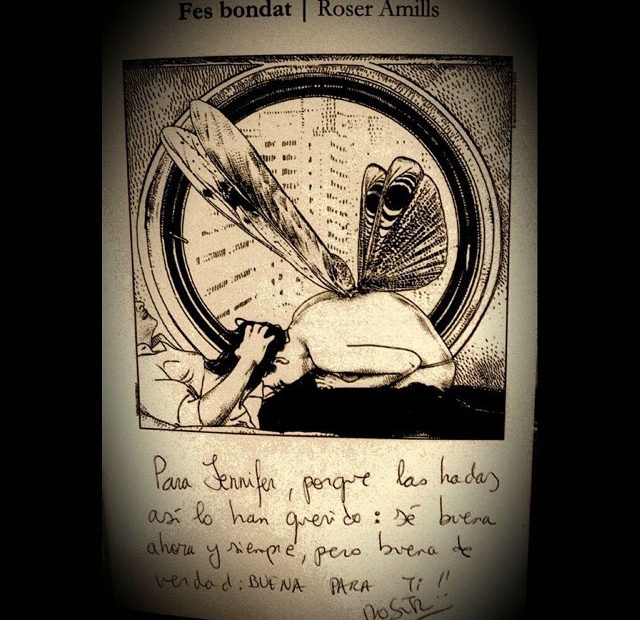 Fes bondat | Roser Amills
Para Jennifer, porque las hadas
así lo han querido: sé buena
ahora y siempre, pero buena de
verdad: BUENA PARA TI!!